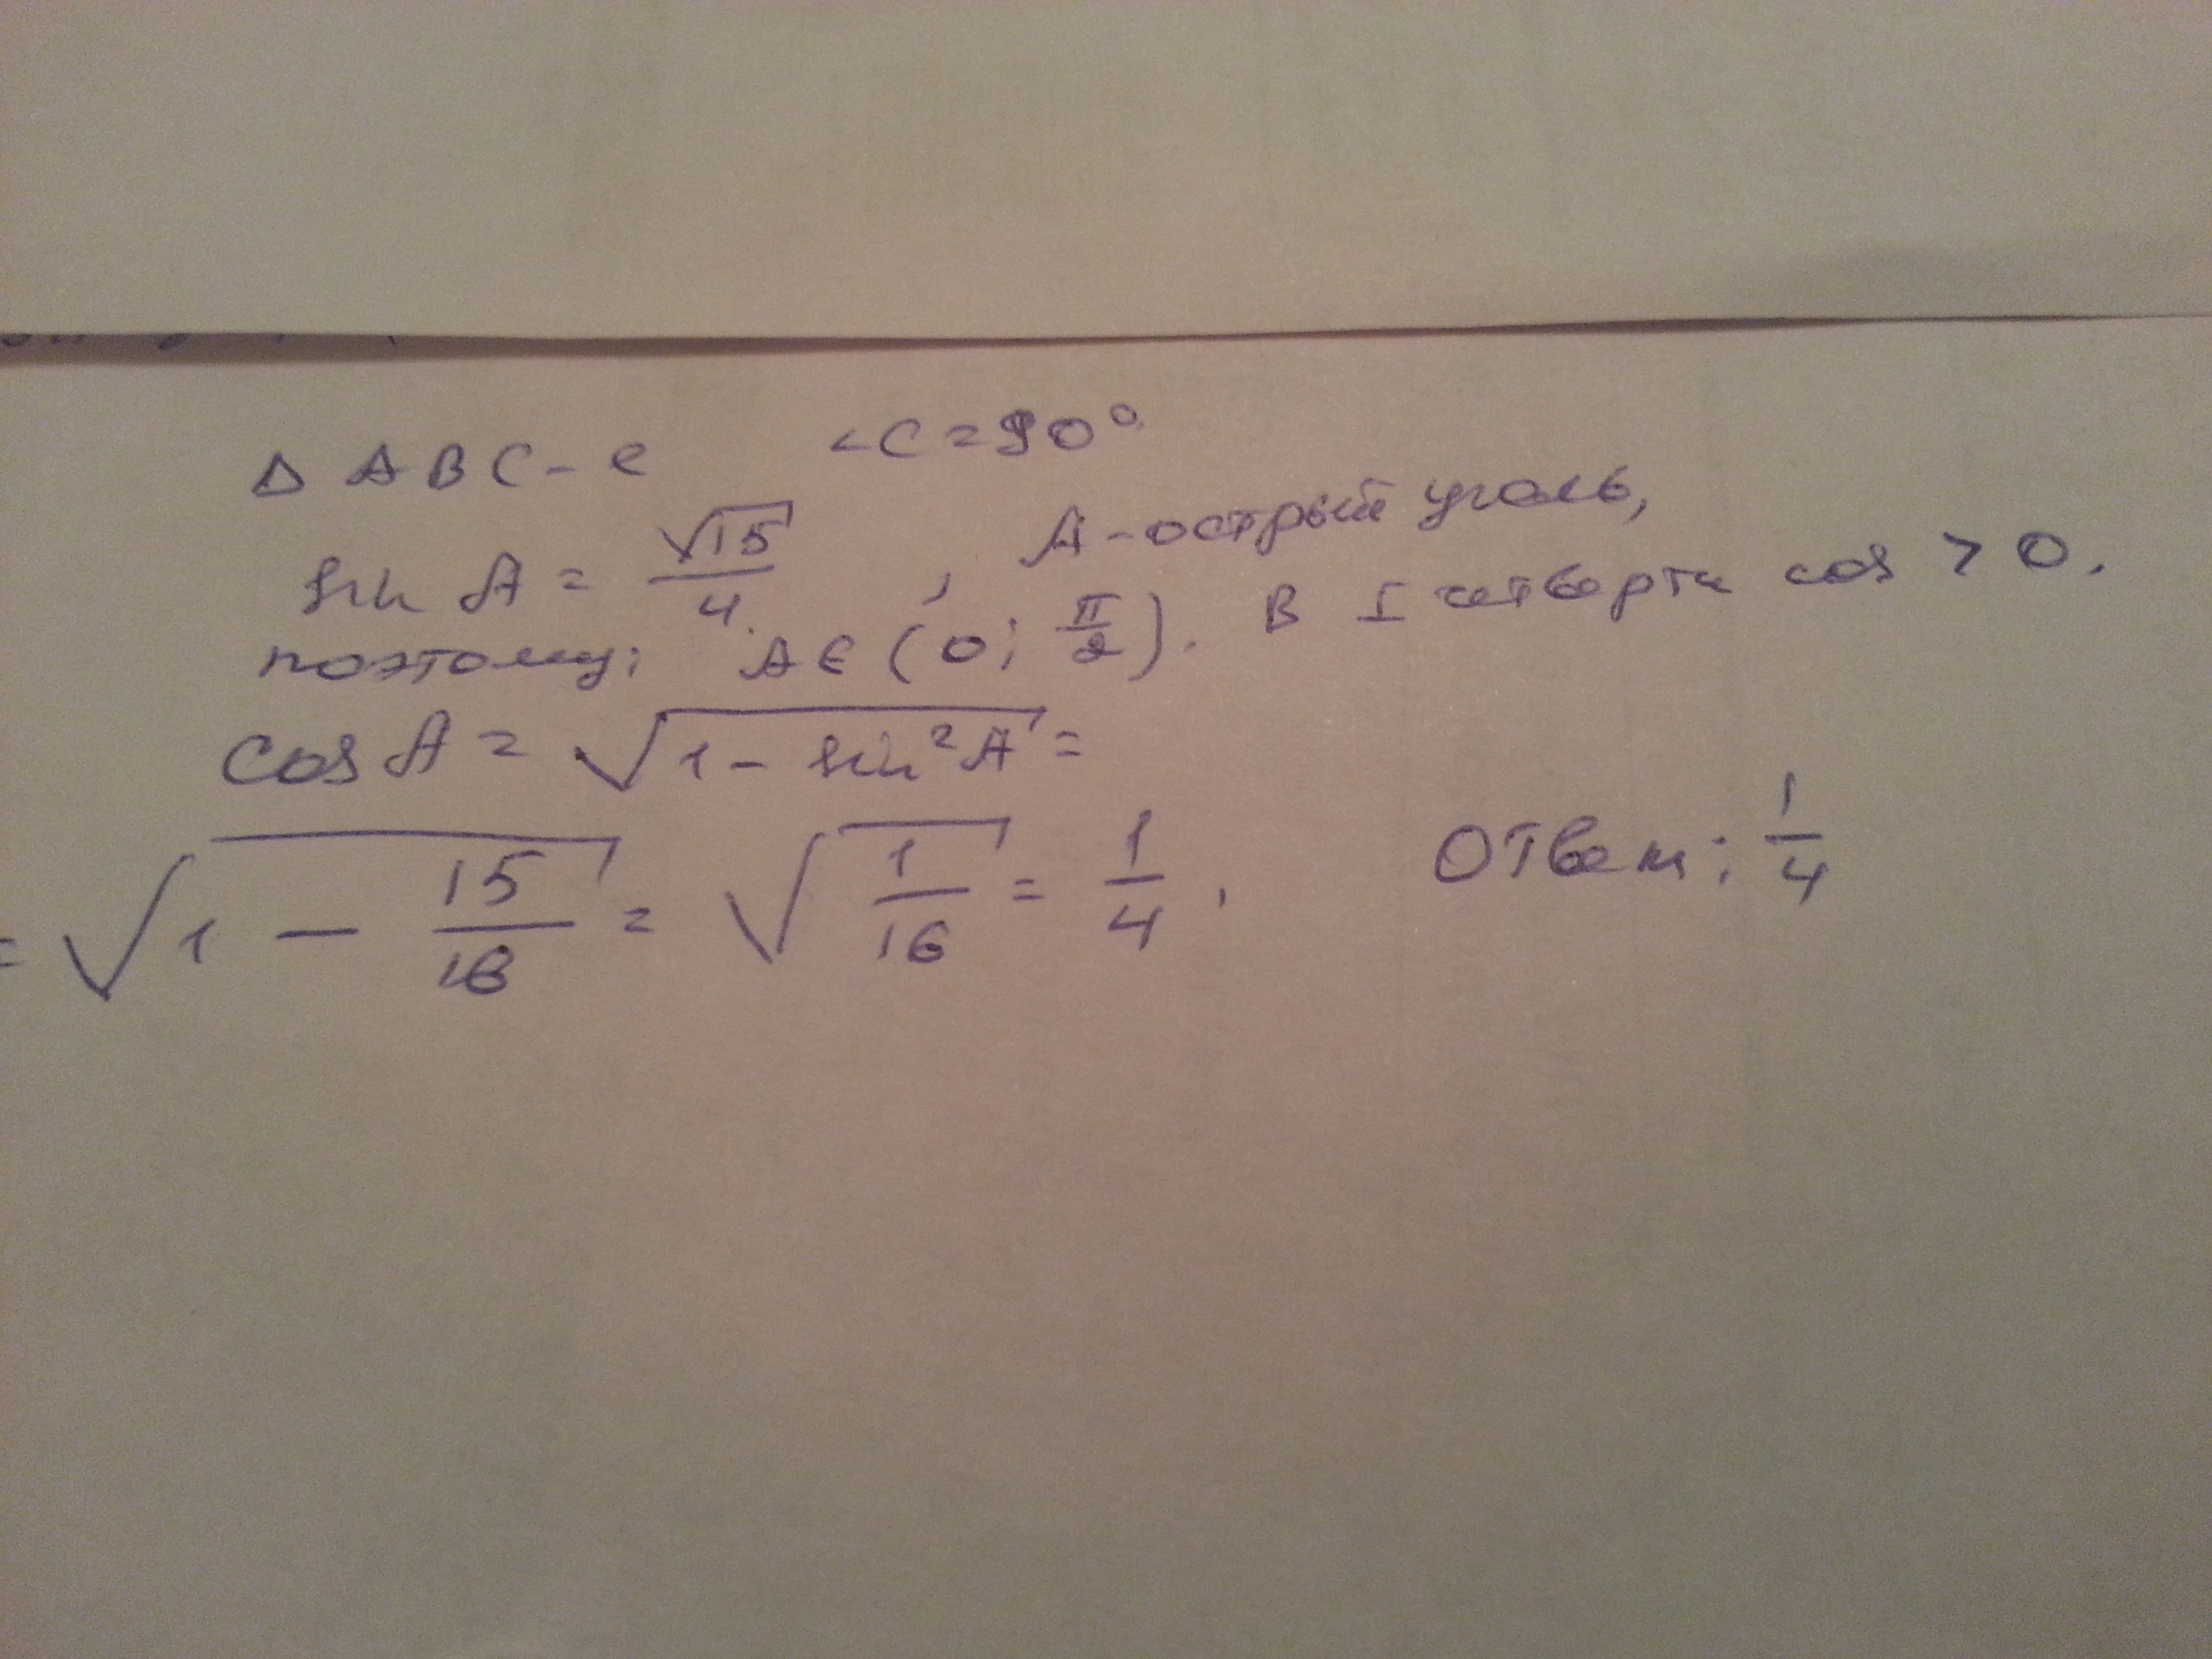 Δ ABC - c ∠C = 90°
sin A = √15/4, A - острый уголь,
поэтому: A ∈ (0; π/2). В I четверти cos > 0.
cos A = √(1 - sin²A) =
= √(1 - 15/16) = √(1/16) = 1/4. Ответ: 1/4